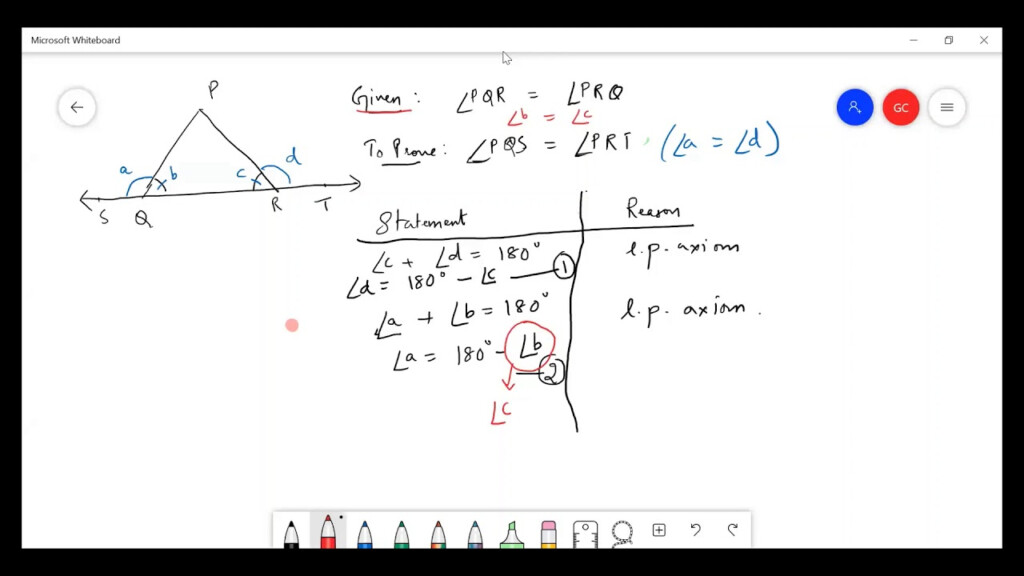 Microsoft Whiteboard
GC
P
a b c d
S Q R T
Given : ∠PQR = ∠PRQ
∠b = ∠c
To Prove: ∠PQS = ∠PRT (∠a = ∠d)
Statement Reason
∠c + ∠d = 180° l.p. axiom
∠d = 180° - ∠c 1
∠a + ∠b = 180° l.p. axiom.
∠a = 180° - ∠b
2
∠c